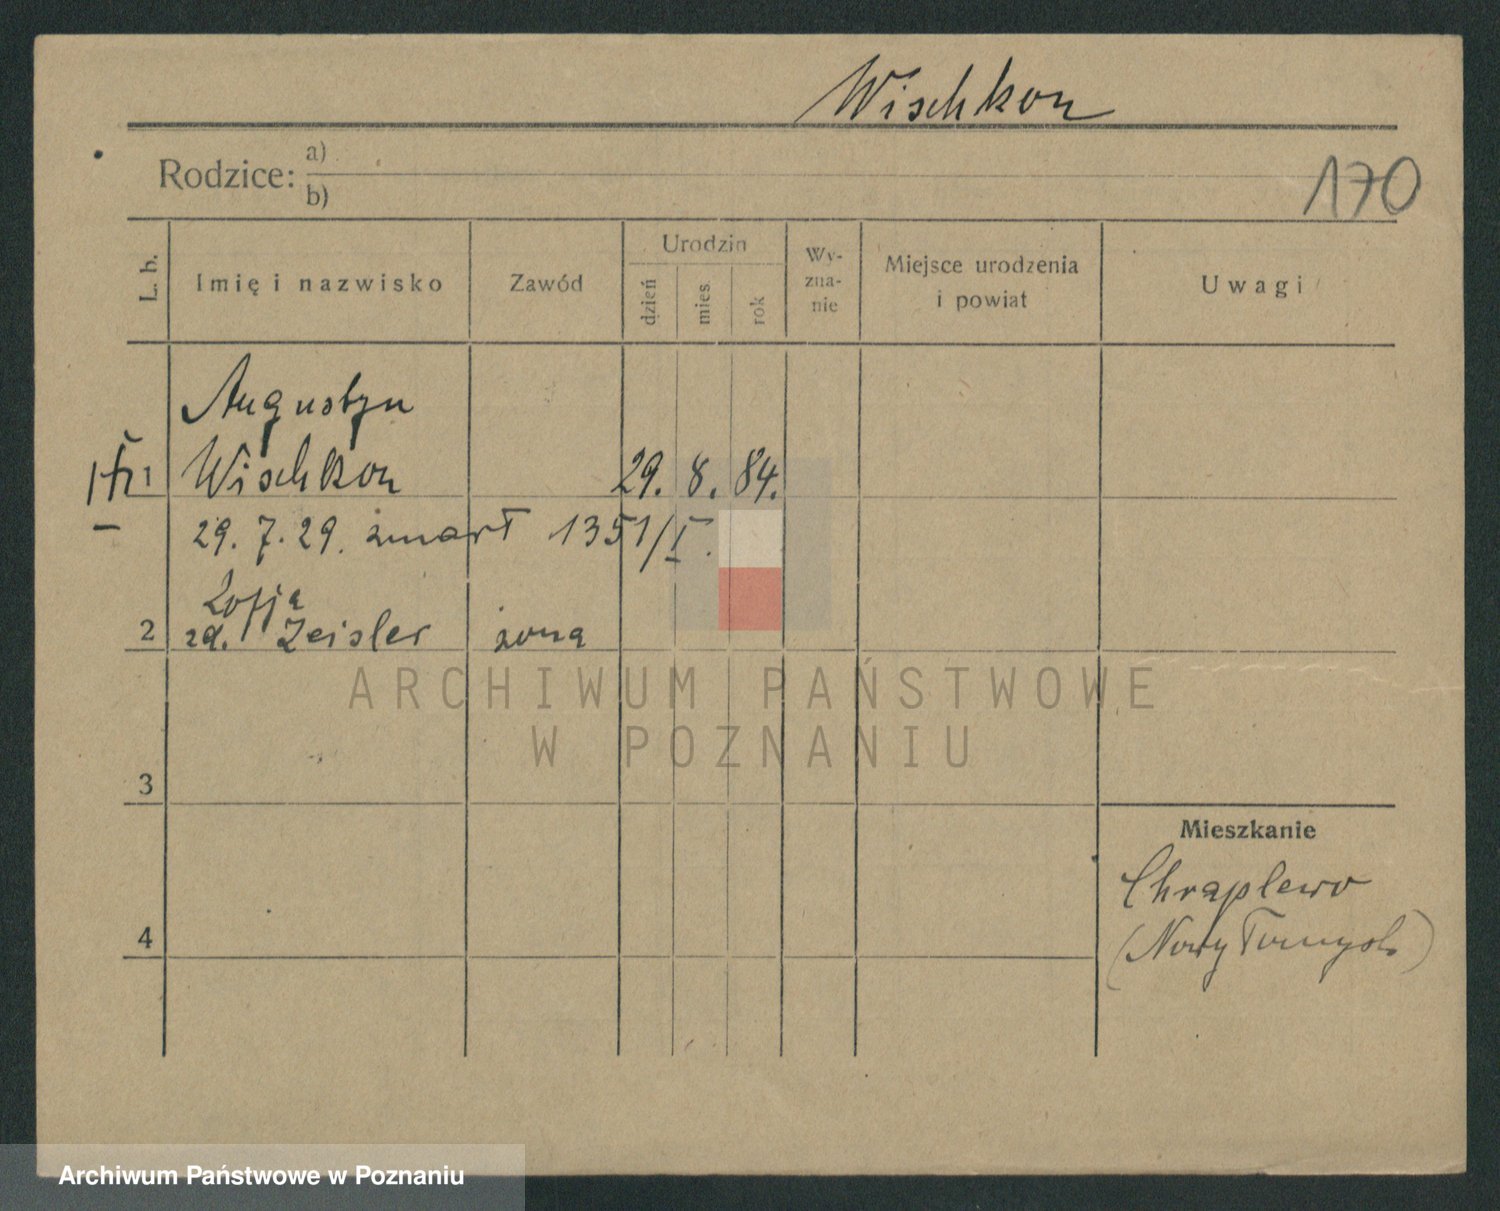 Wischkon
Rodzice: a)
b)
170
L. b.
Imię i nazwisko
Zawód
Urodzin
dzień
mies.
rok
Wy-
zna-
nie
Miejsce urodzenia
i powiat
Uwagi
Augustyn
1 Wischkon 29. 8. 84.
29. 7. 29. zmarł 1351/I.
Zofja
2 zd. Zeisler żona
3
4
Mieszkanie
Chraplewo
(Nowy Tomyśl)
ARCHIWUM PAŃSTWOWE
W POZNANIU
Archiwum Państwowe w Poznaniu